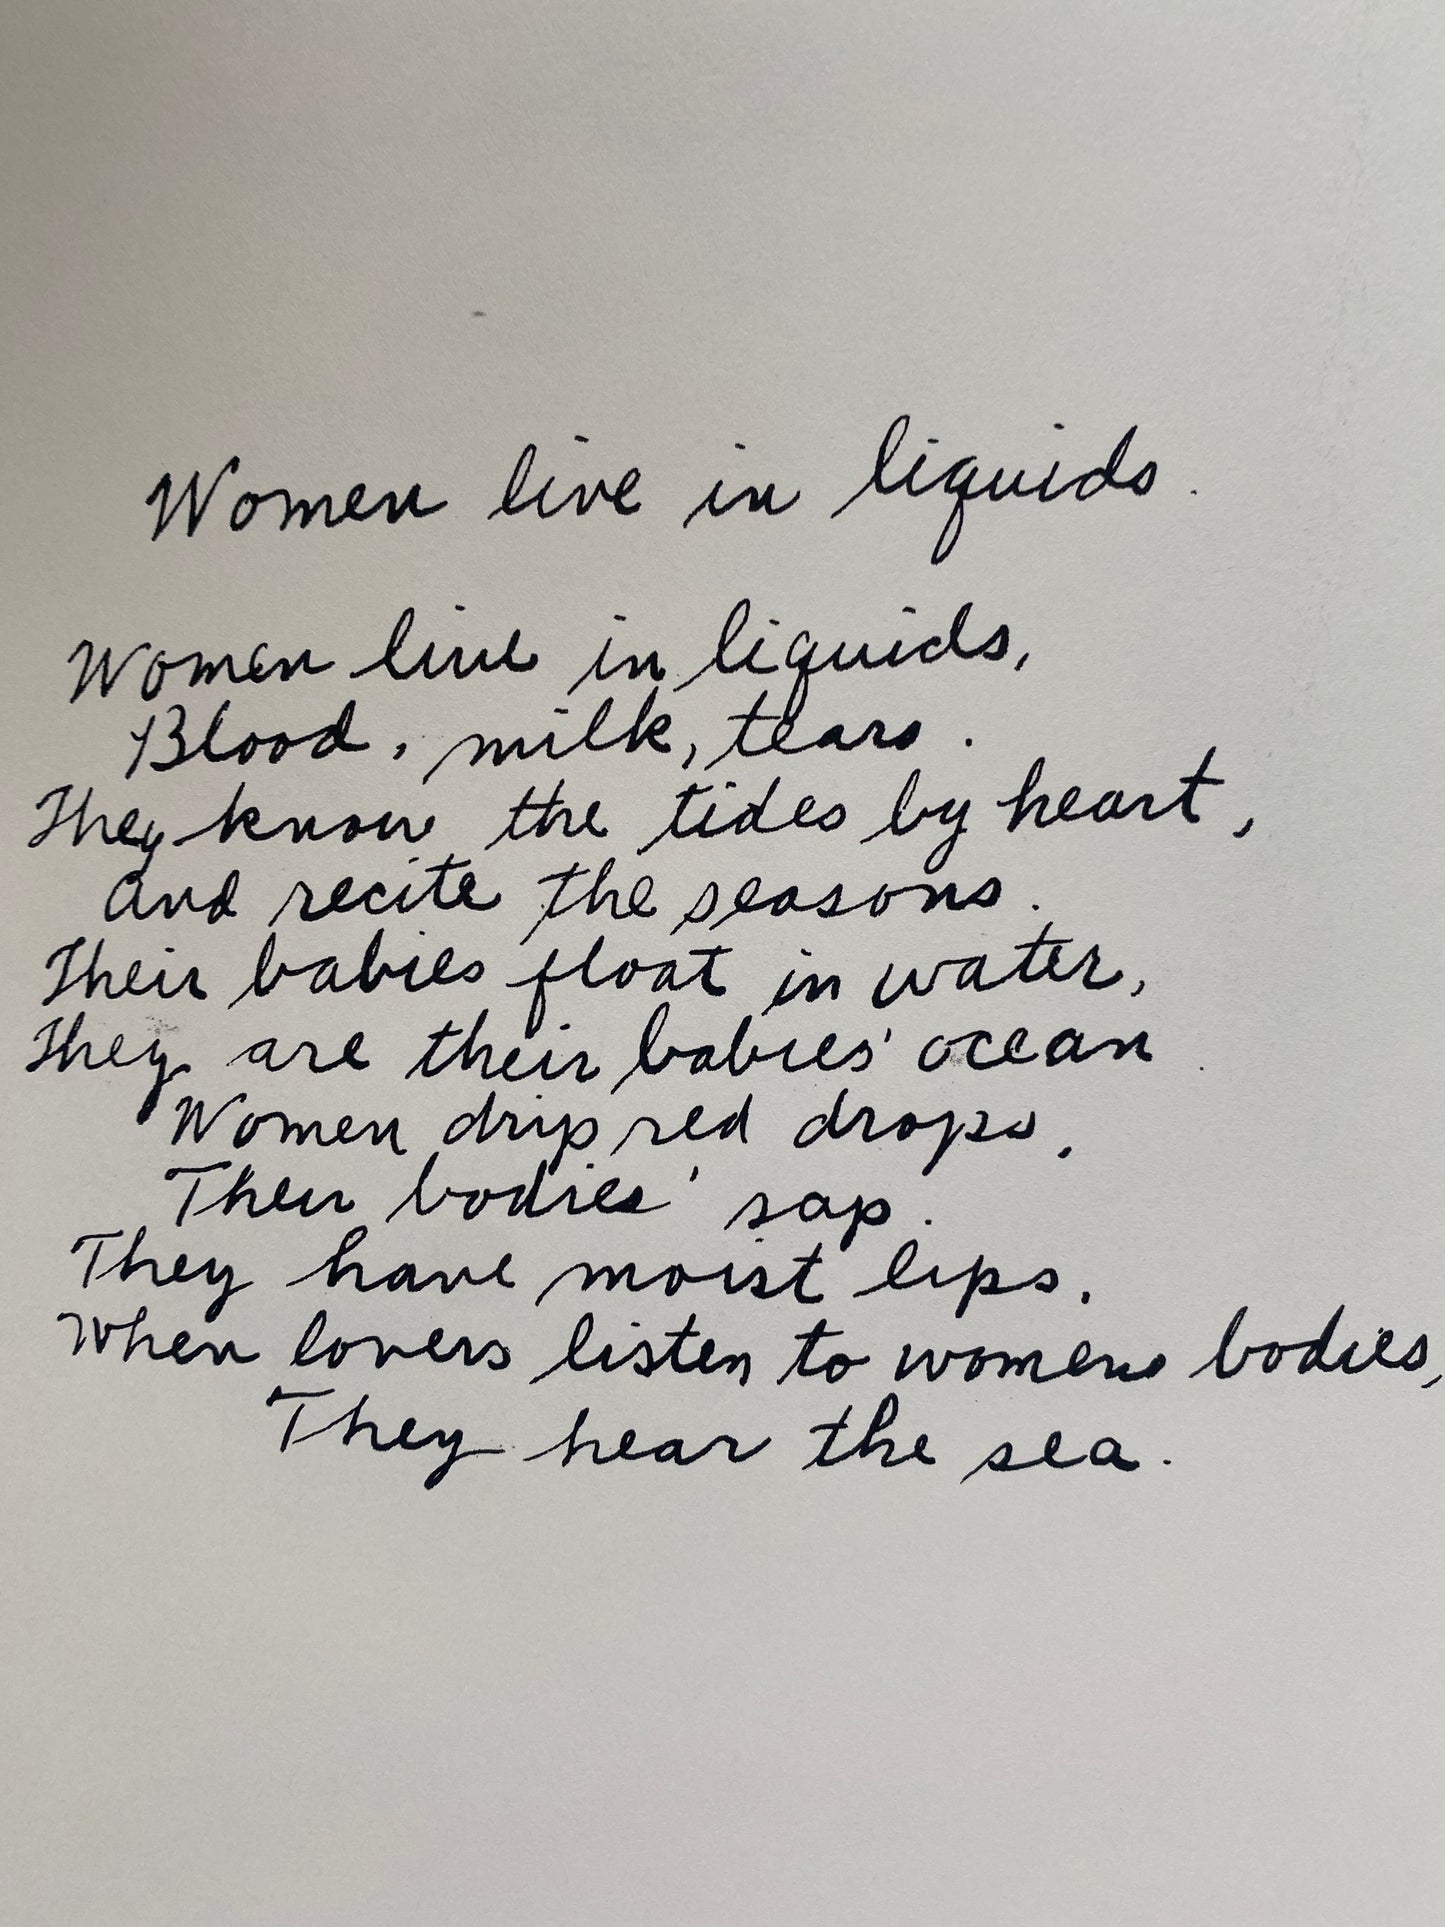 Women live in liquids.
Women live in liquids,
Blood, milk, tears.
They know the tides by heart,
and recite the seasons.
Their babies float in water,
They are their babies' ocean.
Women drip red drops,
Their bodies' sap.
They have moist lips.
When lovers listen to womens bodies,
They hear the sea.